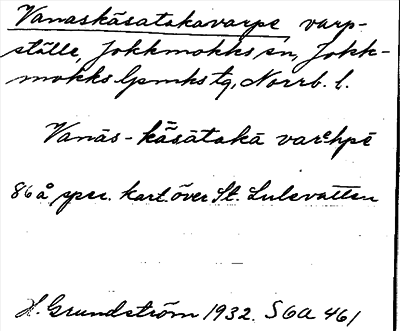 Vanaskäsatakavarpe varp-
ställe, Jokkmokks sn, Jokk-
mokks lpmks tg, Norrb. l.
Vanās-kǟsātakā varehpē
86 å spec. kart. över St. Lulevatten
H. Grundström 1932. S6a 461